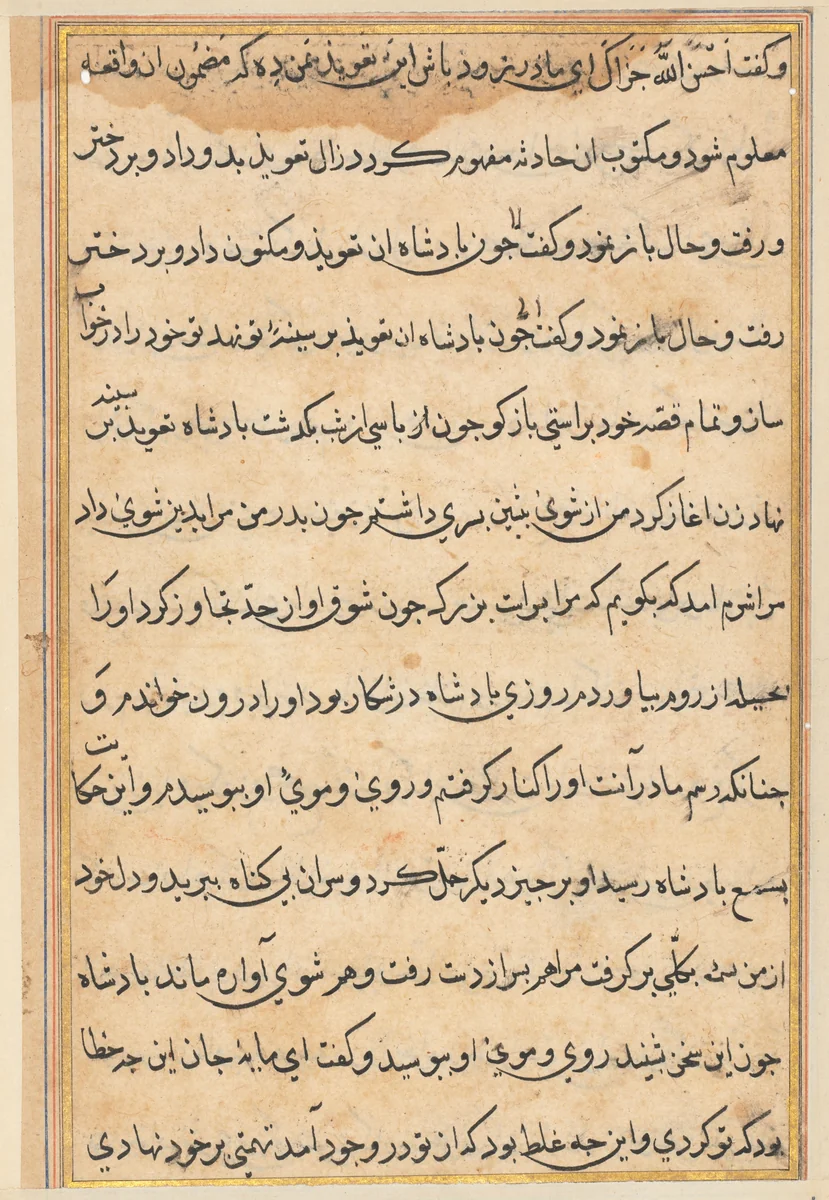 و کفت اَحْسَنَ اللّٰه جَزَاکَ اي ماذر زود باش این تعویذ بمن دِه که مَضمُون ان واقعه
معلوم شود و مکتوب ان حادثه مفهوم کردد زال تعویذ بدو داد و بر دختر
و رفت و حال باز نمود و کفت جون بادشاه ان تعویذ و مکنون داد و بر دختر
رفت و حال باز نمود و کفت جون بادشاه ان تعویذ بر سینهٔ تو نهد تو خود را در خواب
ساز و تمام قصّه خود براستي باز کو جون از باسي از شب بکذشت بادشاه تعویذ بر سینه
نهاد زن اغاز کرد من از شوئ بیشین بسري داشتم جون بدر من مرا بدین شوئ داد
مرا شرم امد که بکویم که مرا بسرست بزرک جون شوق او از حدّ تجاوز کرد او را
بحیله از روم بیاوردم روزي بادشاه در شکار بود او را درون خواندم وَ
جنانکه رسم مادرآنست او را کنار کرفتم و روئ و موئ او ببوسیدم و این حکایت
بسمع بادشاه رسید او بر جیز دیکر حلّ کرد و سر ان بي کناه ببرید و دل خود
از من بکلّي بر کرفت مرا هم بسر از دست رفت و هم شوي آواره ماند بادشاه
جون این سخن بشنید روي و موئ او ببوسید و کفت اي مایهٔ جان این جه خطا
بود که تو کردي و این جه غلط بود که از تو در وجود آمد تهمتي بر خود نهادي